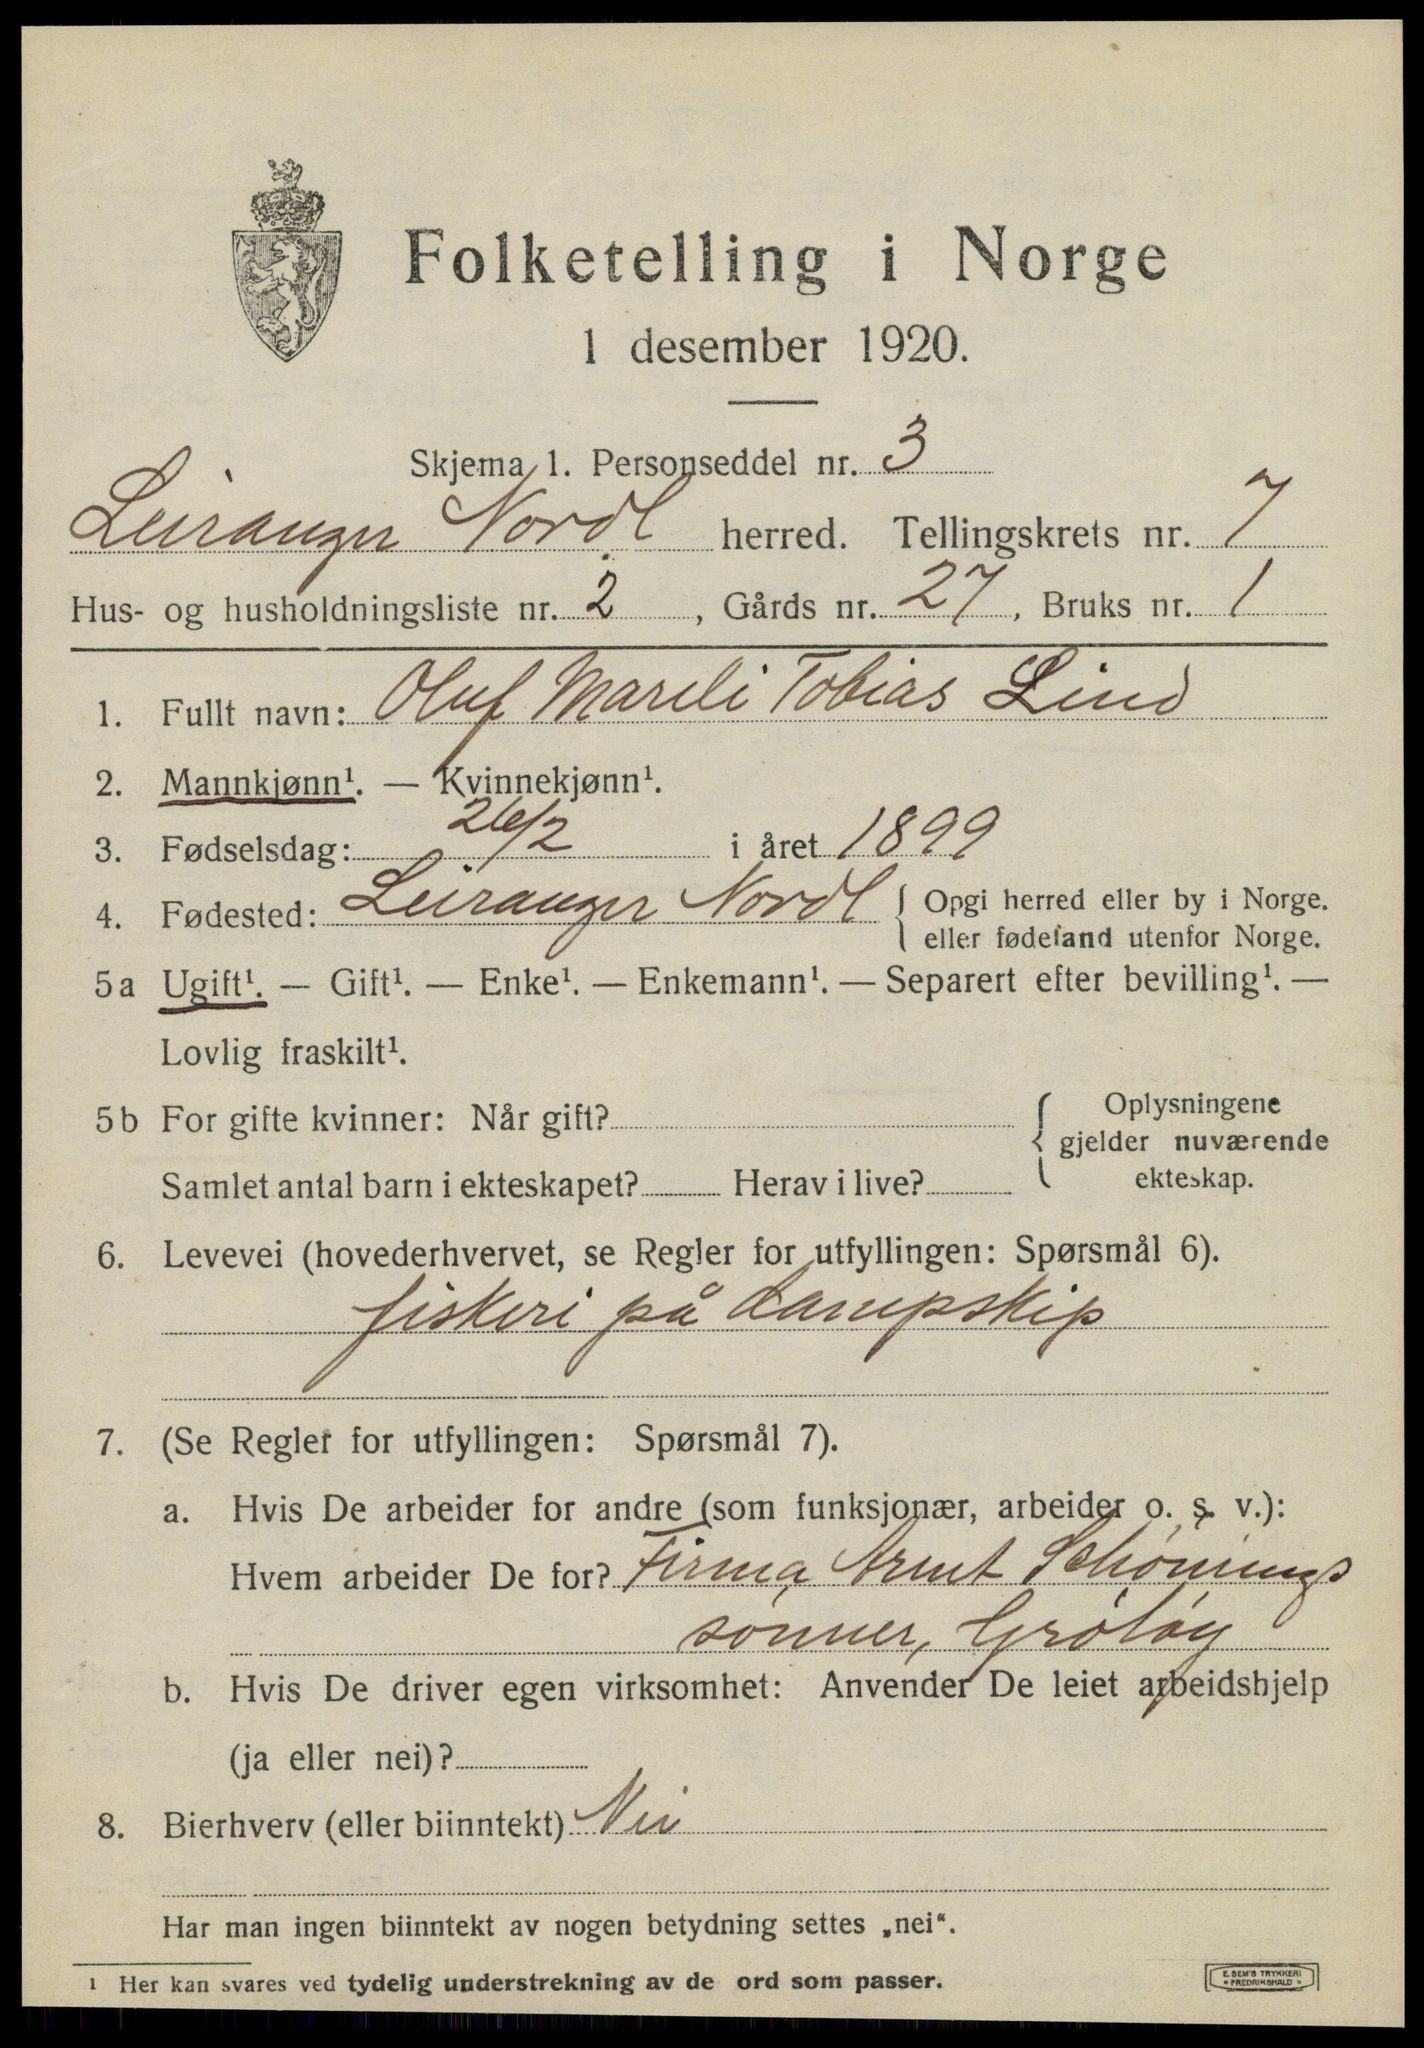 Folketelling i Norge
1 desember 1920.
Skjema 1. Personseddel nr. 3
Leiranger Nordl herred. Tellingskrets nr. 7
Hus- og husholdningsliste nr. 2, Gårds nr. 27, Bruks nr. 1
1. Fullt navn: Oluf Mareli Tobias Lind
2. Mannkjønn¹. — Kvinnekjønn¹.
3. Fødselsdag: 26/2 i året 1899
4. Fødested: Leiranger Nordl { Opgi herred eller by i Norge.
eller fødeland utenfor Norge.
5a Ugift¹. — Gift¹. — Enke¹. — Enkemann¹. — Separert efter bevilling¹. —
Lovlig fraskilt¹.
5b For gifte kvinner: Når gift? { Oplysningene
gjelder nuværende
Samlet antal barn i ekteskapet? Herav i live? ekteskap.
6. Levevei (hovederhvervet, se Regler for utfyllingen: Spørsmål 6).
fiskeri på dampskip
7. (Se Regler for utfyllingen: Spørsmål 7).
a. Hvis De arbeider for andre (som funksjonær, arbeider o. s. v.):
Hvem arbeider De for? Firma Arnt Schønings
sønner, Grøtøy
b. Hvis De driver egen virksomhet: Anvender De leiet arbeidshjelp
(ja eller nei)?
8. Bierhverv (eller biinntekt) Nei
Har man ingen biinntekt av nogen betydning settes „nei“.
¹ Her kan svares ved tydelig understrekning av de ord som passer.
E. SEM'S TRYKKERI
• FREDRIKSHALD •